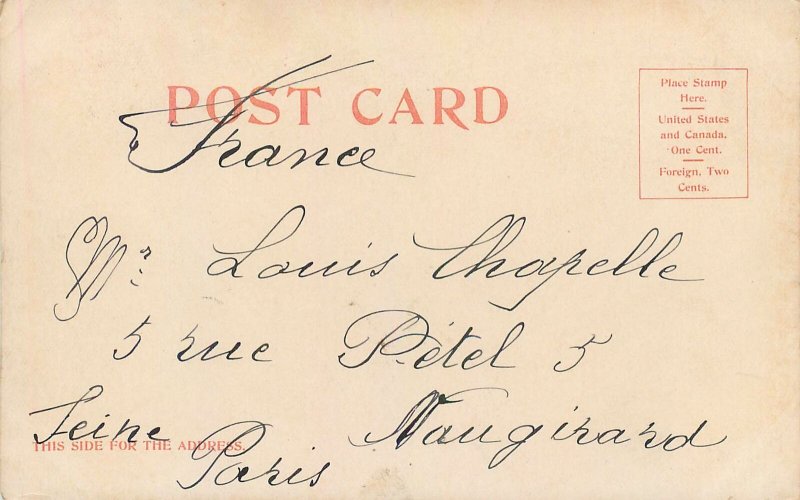 POST CARD
France
Place Stamp
Here.
United States
and Canada,
One Cent.
Foreign, Two
Cents.
Mr. Louis Chapelle
5 rue Pétel 5
Seine Vaugirard
THIS SIDE FOR THE ADDRESS.
Paris